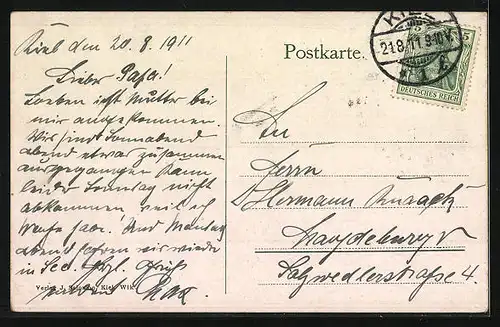 Kiel den 20.8.1911
Lieber Papa!
Soeben ist Mutter bei
mir angekommen.
Wir sind Sonnabend
abend etwas zusammen
ausgegangen kann
leider Sonntag nicht
abkommen weil ich
Wache habe! Und Montag
abend fahren wir wieder
in See. Hrzl. Grüße
Max
Postkarte.
KIEL
21.8.11.9-10V.
5
DEUTSCHES REICH
An
Herrn
Hermann
Magdeburg
Salzwedlerstraße 4.
Verlag J. Kiel, Wik